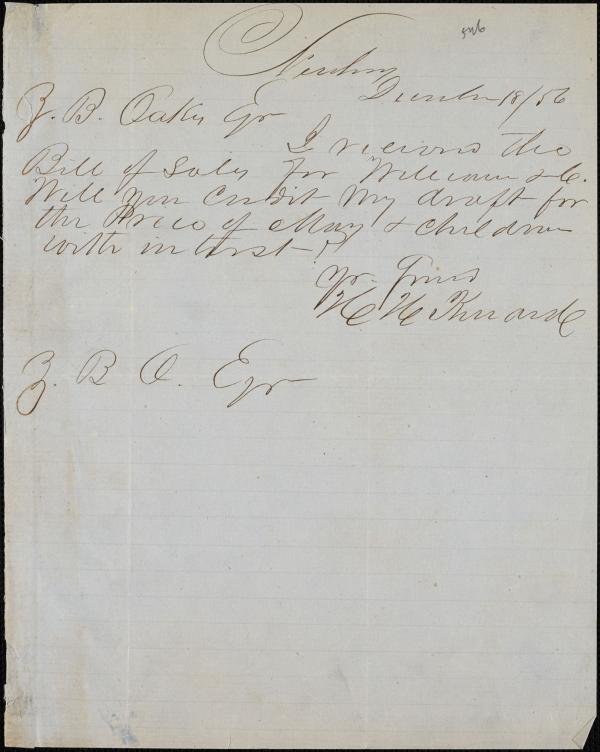 Newbury
December 18/56
Z. B. Oakes Eqr
I recieved the
Bill of Sales for William & C.
Will you Credit My draft for
the Price of May & Children
with interst?
Yr. Friend
H H Kinard
Z. B O. Eqr